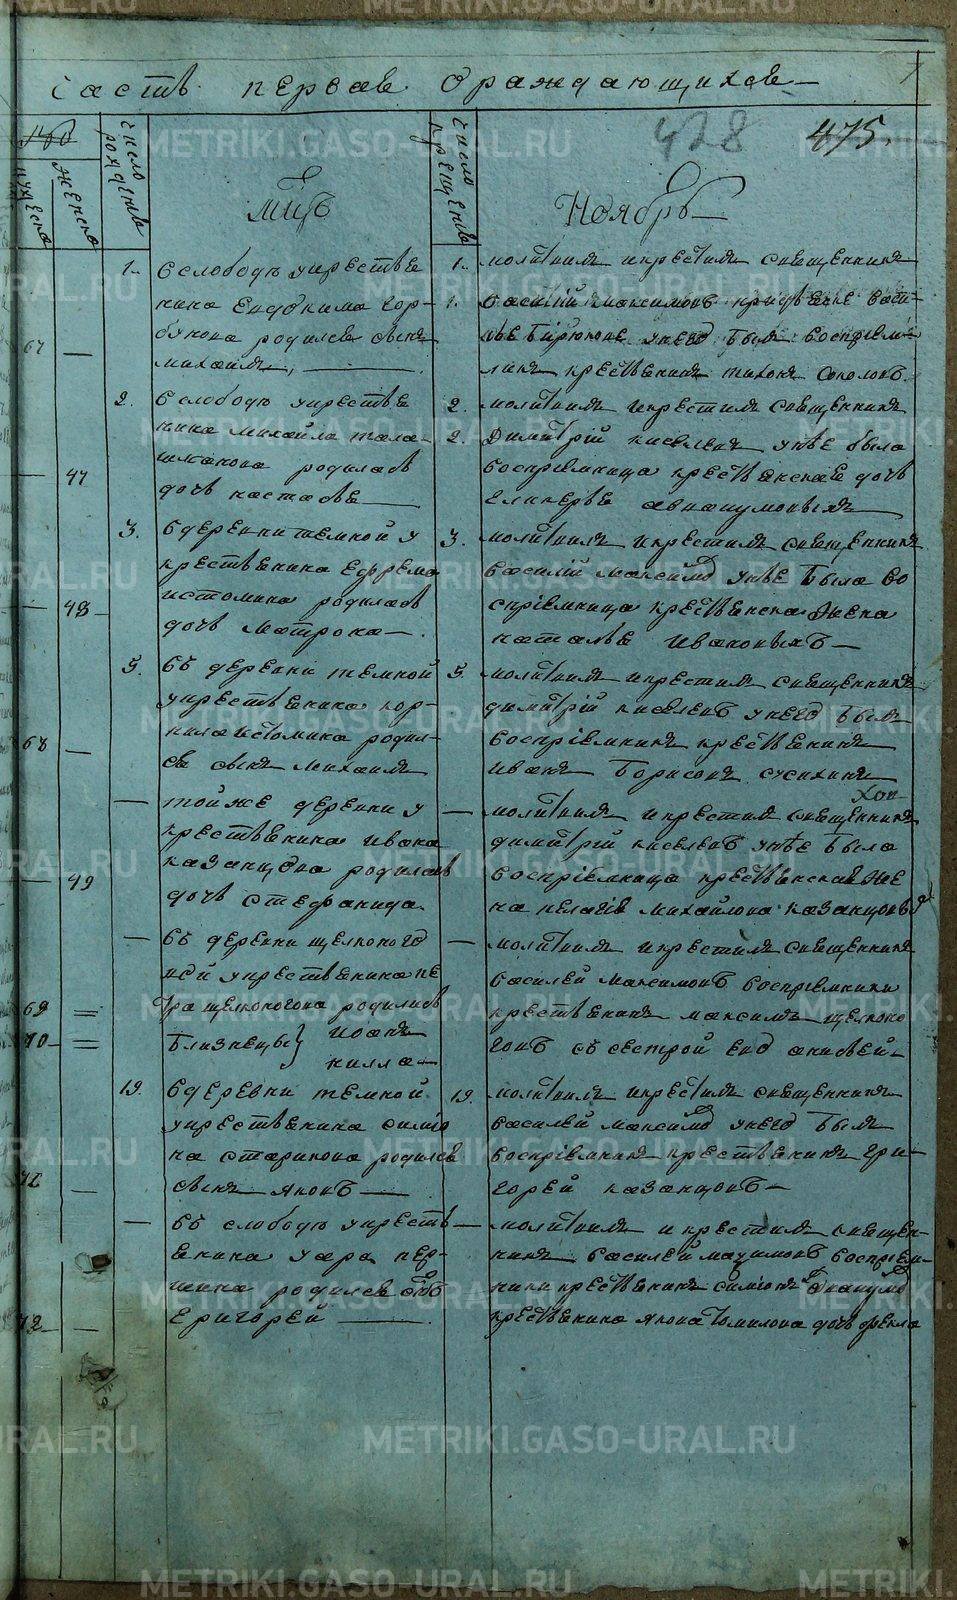 часть первая ораждающихся
478 475.
число рождения
число крещения
мужеска
женска
мцъ Ноябрь
1. в слободѣ укрестья
нина Евдокима Гор-
бунова родился сынъ
67 — михаилъ
1. молитвилъ икрестилъ священникъ
1. василій максимовъ
унего былъ восприем-
никъ крестьянинъ тихонъ соколовъ
2. в слободѣ укрестья
нина михайла тала-
шманова родилась
— 47 дочь настасья
2. молитвилъ икрестилъ священникъ
2. Димитрій киселевъ унѣе была
восприемница крестьянская дочь
гликерья
3. в деревни темной у
крестьянина ефрема
— 48 истомина родилась
дочь матрона
3. молитвилъ икрестилъ священникъ
василій максимо унѣе была во
спріемница крестьянска жена
наталья ивановыхъ
5. въ деревни темной
укрестьянина кор-
нила истомина родил-
68 — ся сынъ михаилъ
5. молитвилъ икрестилъ священникъ
димитрій киселевъ унего былъ
воспріемникъ крестьянинъ
иванъ борисовъ сусихинъ
— той же деревни у
крестьянина ивана
— 49 казанцова родилась
дочь стефанида
— молитвилъ икрестилъ священникъ
димитрій киселевъ унѣе была
воспріемница крестьянская же
на пелагія михайлова казанцовы
— въ деревни щелконого
вой укрестьянина пе
69 = тра щелконогова родились
70 = близнецы} иоанъ
килла
— молитвилъ икрестилъ священникъ
василей максимовъ восприемники
крестьянинъ максимъ щелконо
говъ съ сестрой его анисьей
19. в деревни темной
укрестьянина симіо
на старикова родился
— сынъ яковъ
19. молитвилъ икрестилъ священникъ
василей максимо унего былъ
воспріемникъ крестьянинъ гри-
горей казанцовъ
— въ слободѣ укресть
янина уара пер-
шина родился сынъ
72 — григорей
— молитвилъ и крестилъ священ-
никъ василей максимовъ воспріем-
ники крестьянинъ симіонъ
крестьянина якова томилова дочь фекла